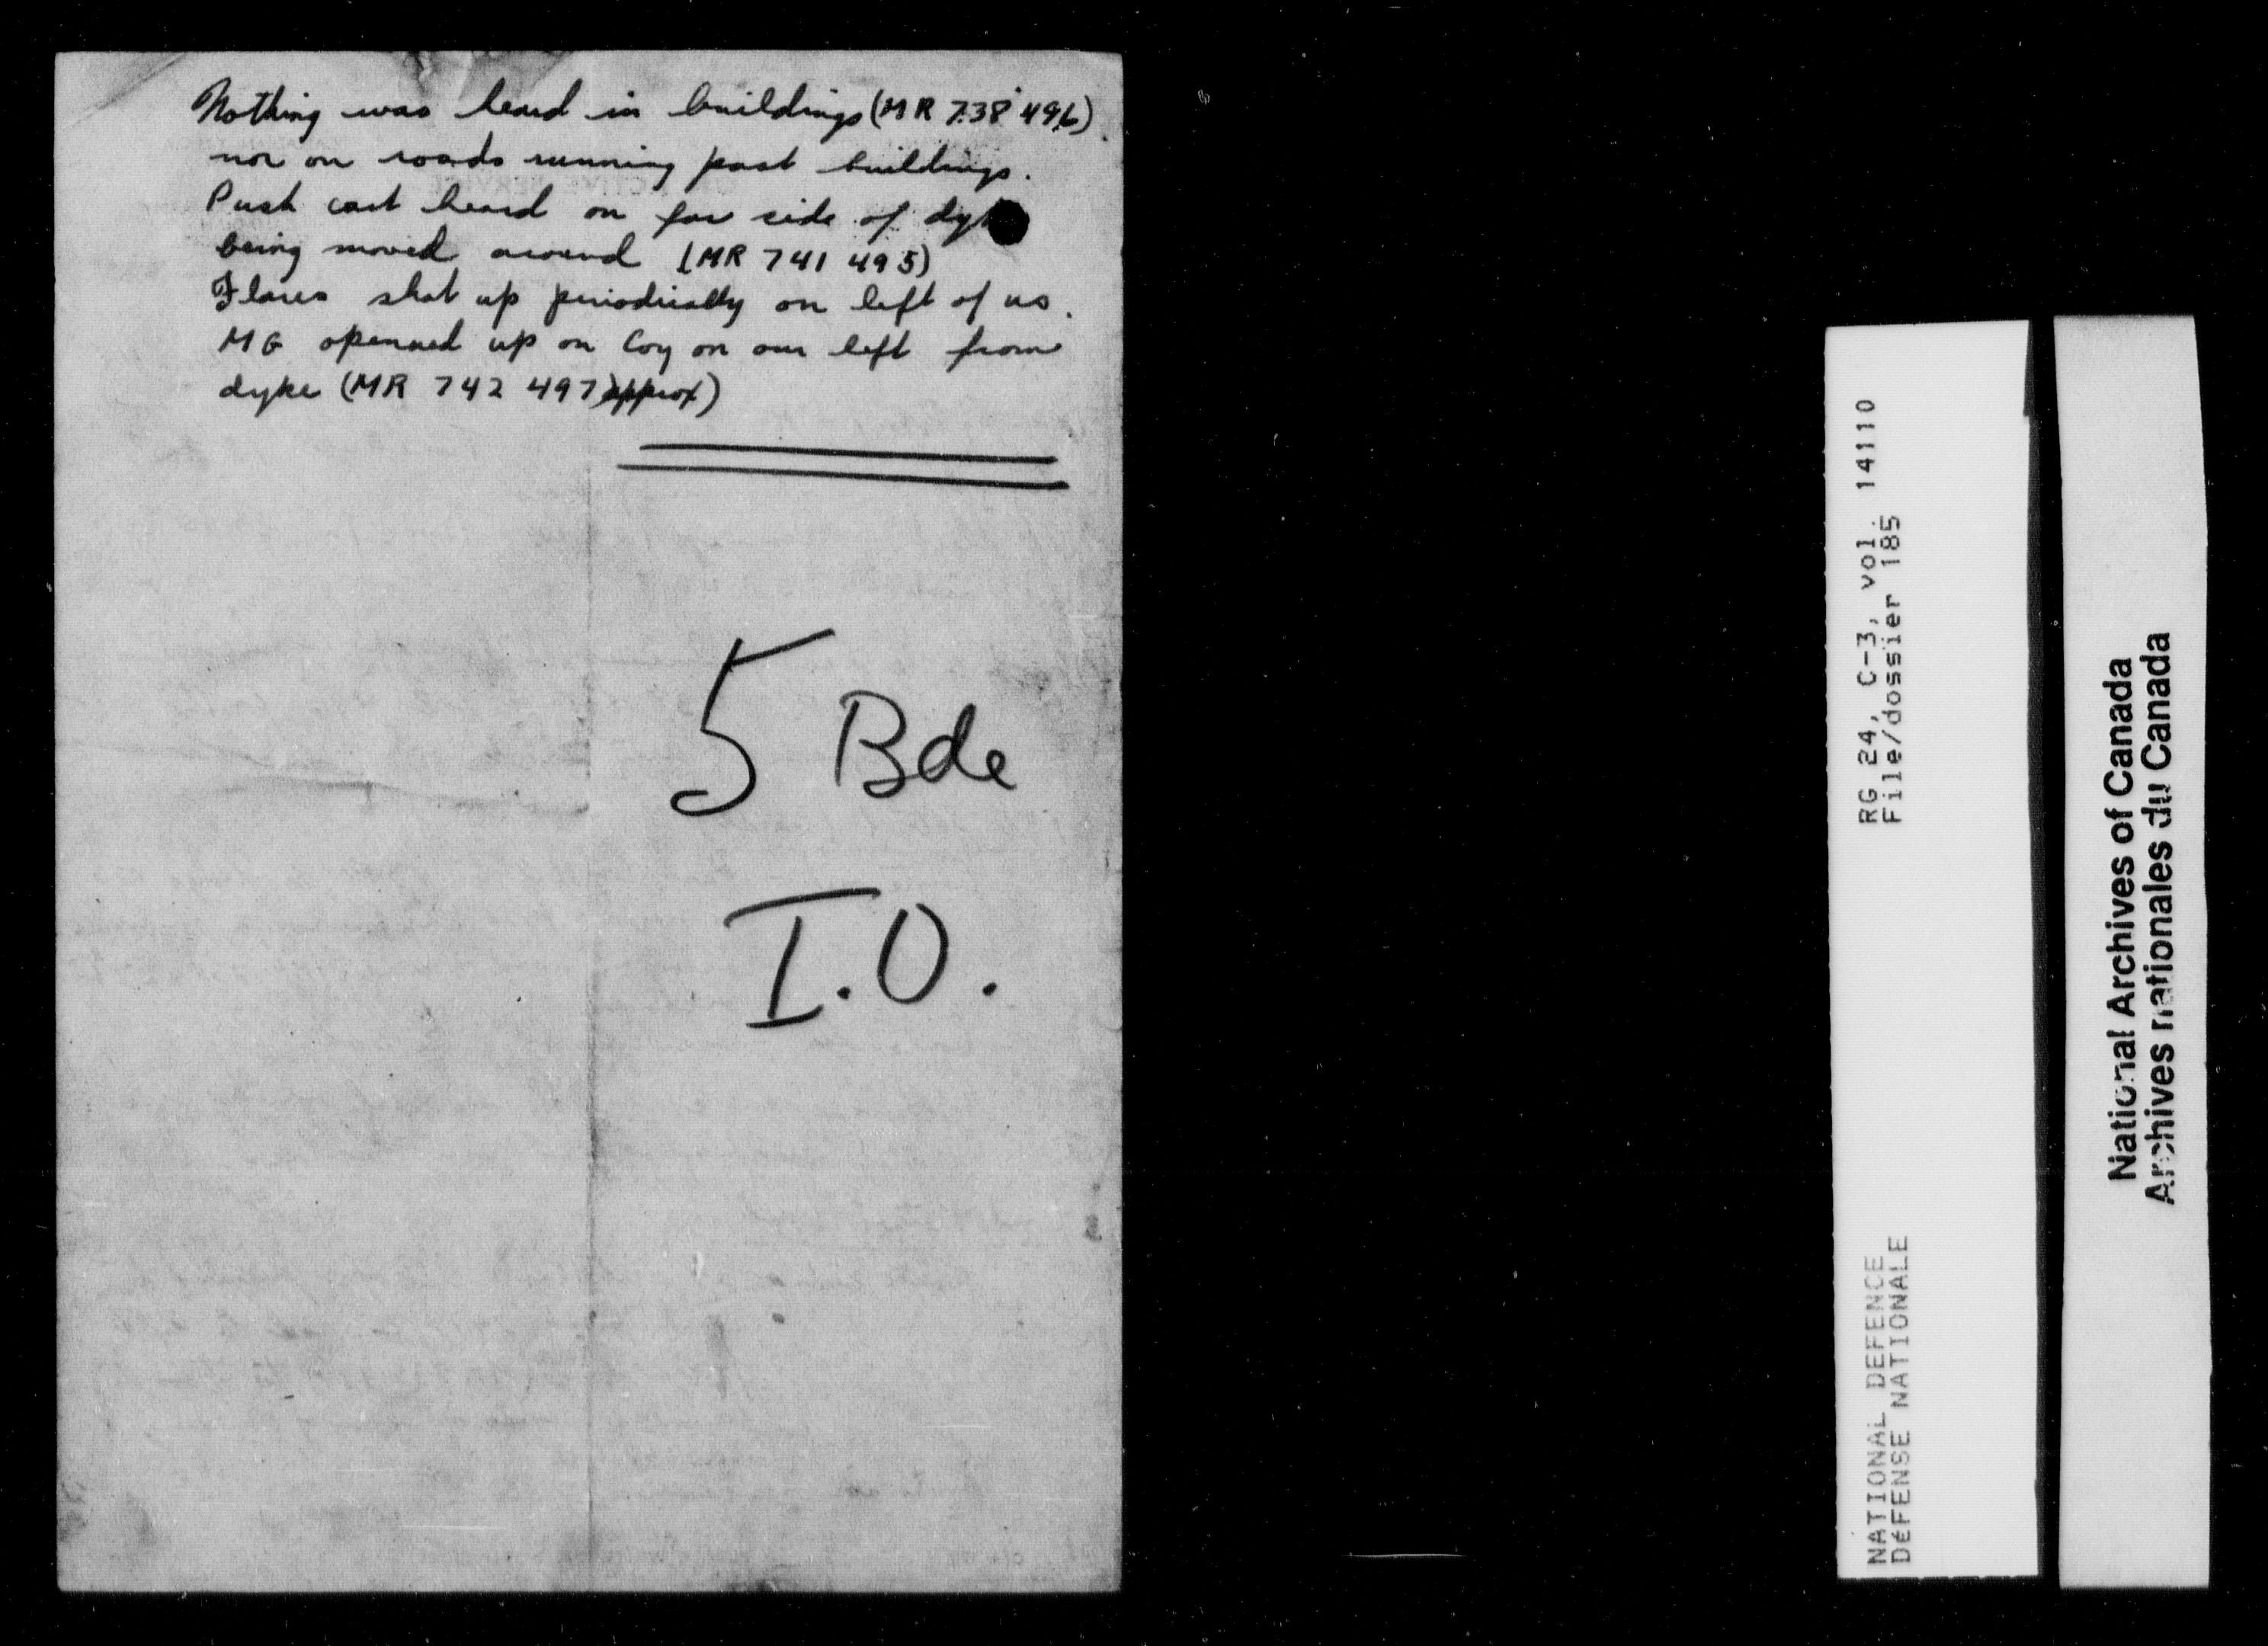 Nothing was heard in buildings (MR 738 496)
nor on roads running past buildings.
Push cart heard on far side of dyke
being moved around (MR 741 495)
Flares shot up periodically on left of us.
MG openned up on Coy on our left from
dyke (MR 742 497 approx)
5 Bde
I.O.
RG 24, C-3, vol. 14110
File/dossier 185
NATIONAL DEFENCE
DÉFENSE NATIONALE
National Archives of Canada
Archives nationales du Canada